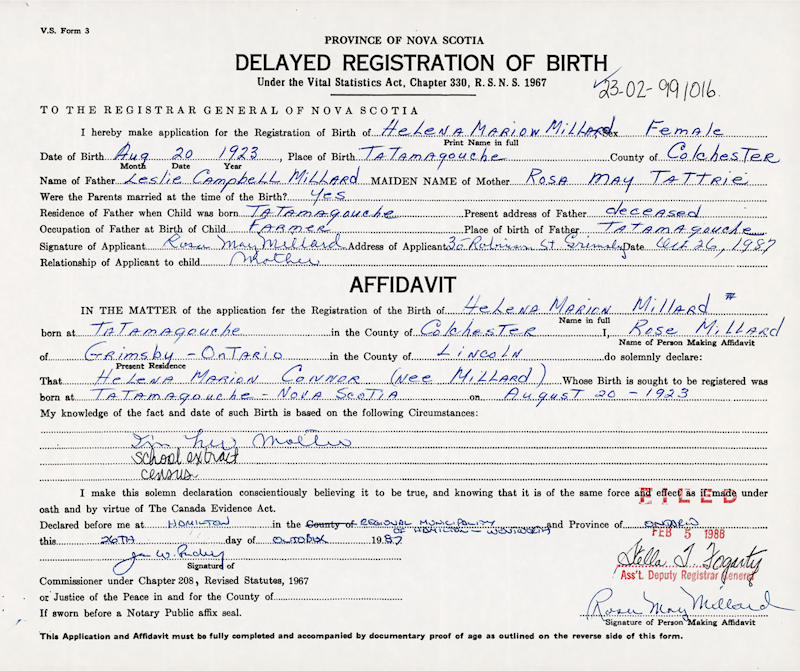 V.S. Form 3
PROVINCE OF NOVA SCOTIA
DELAYED REGISTRATION OF BIRTH
Under the Vital Statistics Act, Chapter 330, R.S.N.S. 1967
23-02-991016
TO THE REGISTRAR GENERAL OF NOVA SCOTIA
I hereby make application for the Registration of Birth of HELENA MARION MILLARD Sex Female
Print Name in full
Date of Birth Aug 20 1923, Place of Birth TATAMAGOUCHE County of COLCHESTER
Month Date Year
Name of Father LESLIE CAMPBELL MILLARD MAIDEN NAME of Mother ROSA MAY TATTRIE
Were the Parents married at the time of the Birth? Yes
Residence of Father when Child was born TATAMAGOUCHE Present address of Father deceased
Occupation of Father at Birth of Child FARMER Place of birth of Father TATAMAGOUCHE
Signature of Applicant Rosa May Millard Address of Applicant 30 Robinson St Grimsby Date Oct 26, 1987
Relationship of Applicant to child Mother
AFFIDAVIT
IN THE MATTER of the application for the Registration of the Birth of HELENA MARION MILLARD #
Name in full
born at TATAMAGOUCHE in the County of COLCHESTER I, ROSE MILLARD
Name of Person Making Affidavit
of GRIMSBY - ONTARIO in the County of LINCOLN do solemnly declare:
Present Residence
That HELENA MARION CONNOR (NEE MILLARD) Whose Birth is sought to be registered was
born at TATAMAGOUCHE - NOVA SCOTIA on AUGUST 20 - 1923
My knowledge of the fact and date of such Birth is based on the following Circumstances:
I'm her Mother
school extract
census
I make this solemn declaration conscientiously believing it to be true, and knowing that it is of the same force and effect as if made under
FILED
oath and by virtue of The Canada Evidence Act.
Declared before me at HAMILTON in the County of REGIONAL MUNICIPALITY OF HAMILTON - WENTWORTH and Province of ONTARIO
this 26TH day of OCTOBER 1987
FEB 5 1988
Stella T Fogarty
Signature of
Ass't. Deputy Registrar General
Commissioner under Chapter 208, Revised Statutes, 1967
or Justice of the Peace in and for the County of
Rosa May Millard
If sworn before a Notary Public affix seal.
Signature of Person Making Affidavit
This Application and Affidavit must be fully completed and accompanied by documentary proof of age as outlined on the reverse side of this form.